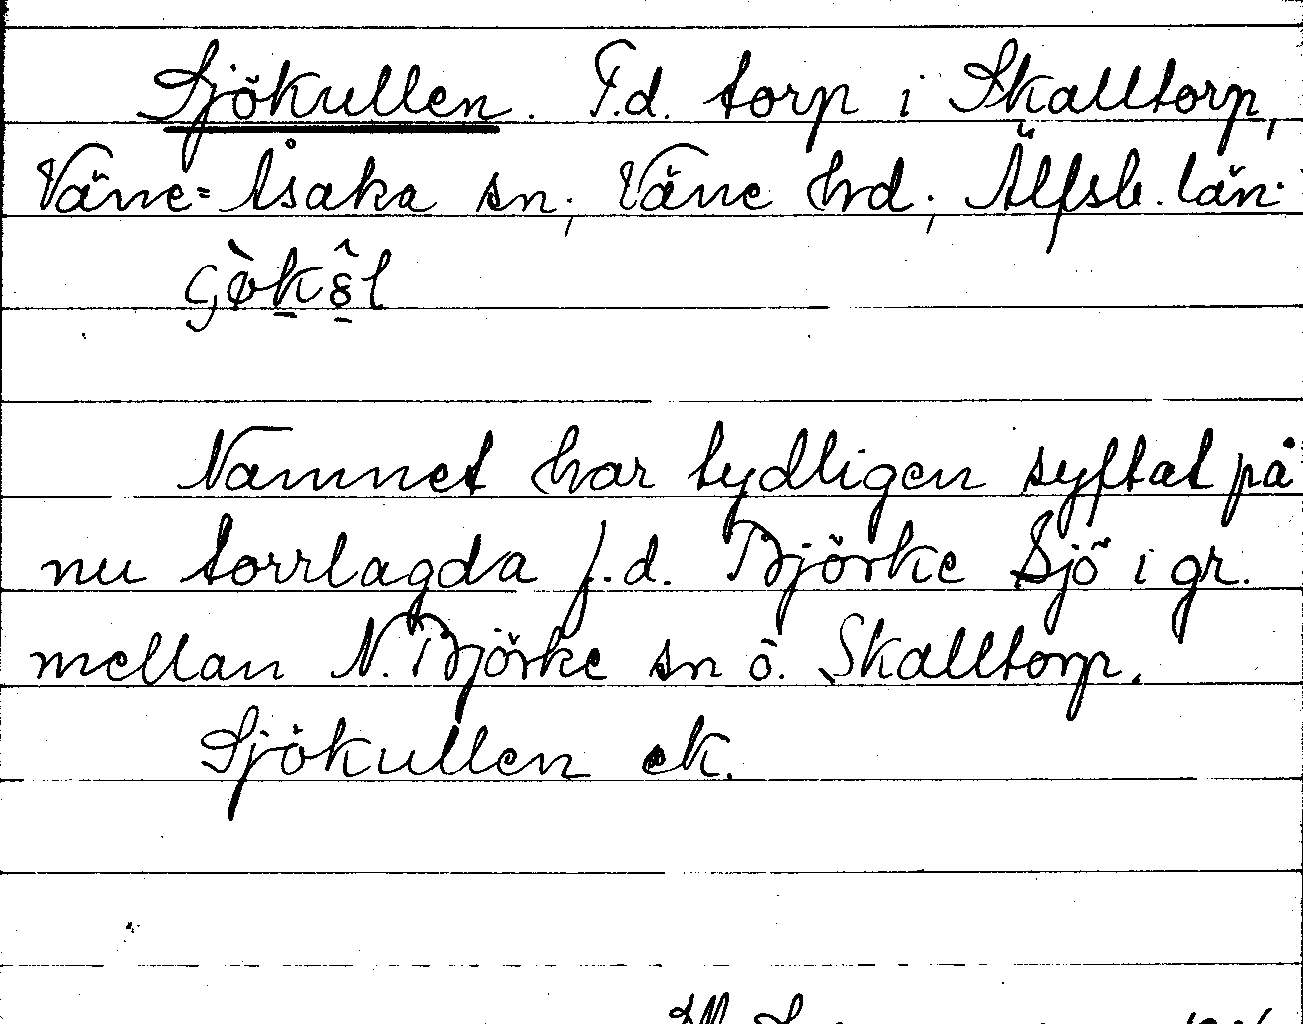 Sjökullen. F.d. torp i Skalltorp,
Väne-Åsaka sn, Väne hrd, Älfsb. län.
Namnet har tydligen syftat på
nu torrlagda f.d. Björke Sjö i gr.
mellan N. Björke sn o. Skalltorp.
Sjökullen ek.